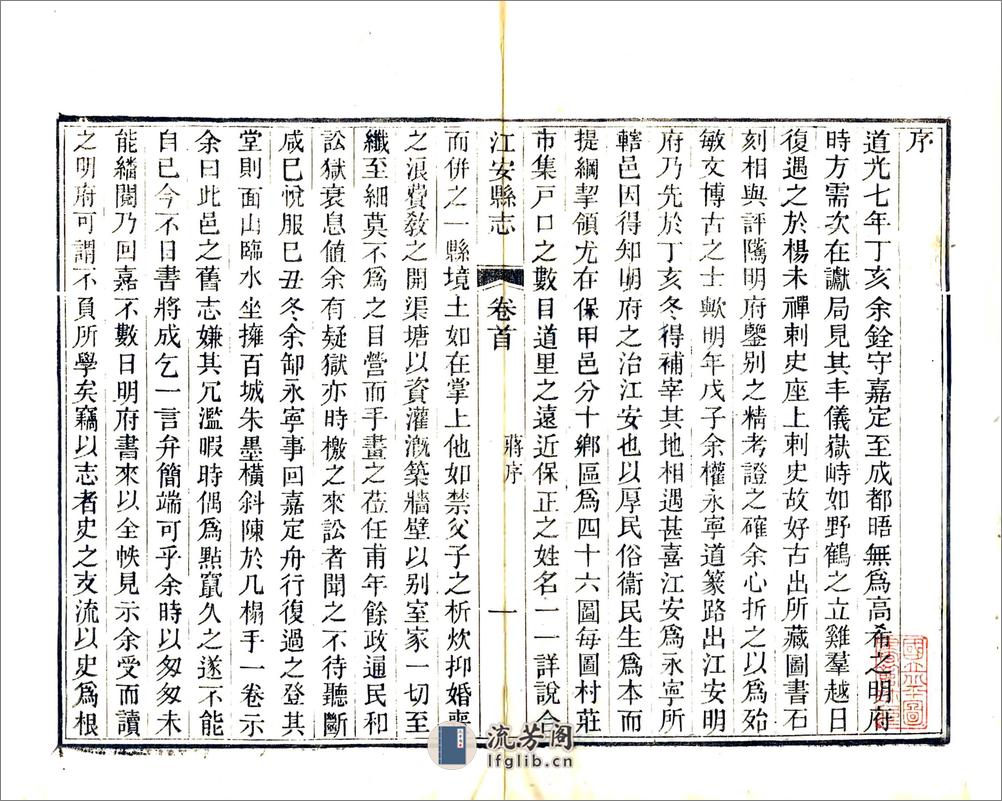 序
道光七年丁亥余銓守嘉定至成都晤無為高希之明府
時方需次在讞局見其丰儀嶽峙如野鶴之立雞羣越日
復遇之於楊未禪刺史座上刺史故好古出所藏圖書石
刻相與評隲明府鑒別之精考證之確余心折之以為殆
敏文博古之士歟明年戊子余權永寧道篆路出江安明
府乃先於丁亥冬得補宰其地相遇甚喜江安為永寧所
轄邑因得知明府之治江安也以厚民俗衞民生為本而
提綱挈領尤在保甲邑分十鄉區為四十六圖每圖村莊
市集戸口之數目道里之遠近保正之姓名一一詳說合
江安縣志 卷首 蔣序 一
而併之一縣境土如在掌上他如禁父子之析炊抑婚喪
之浪費敎之開渠塘以資灌漑築牆壁以别室家一切至
纖至細莫不為之目營而手畫之莅任甫年餘政通民和
訟獄衰息値余有疑獄亦時檄之來訟者聞之不待聽斷
咸已悅服已丑冬余卸永寧事回嘉定舟行復過之登其
堂則面山臨水坐擁百城朱墨橫斜陳於几榻手一卷示
余曰此邑之舊志嫌其冗濫暇時偶為點竄久之遂不能
自已今不日書將成乞一言弁簡端可乎余時以匆匆未
能繙閱乃回嘉不數日明府書來以全帙見示余受而讀
之明府可謂不負所學矣竊以志者史之支流以史為根
流芳阁
lfglib.cn